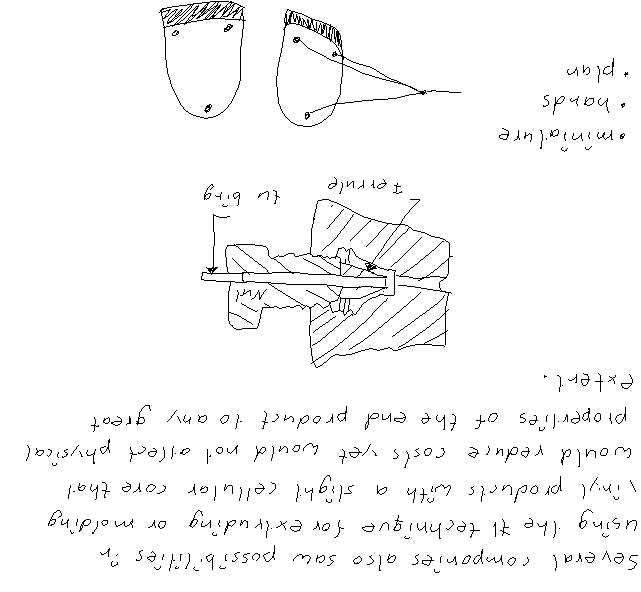 Several companies also saw possibilities in
using the TI technique for extruding or molding
vinyl products with a slight cellular core that
would reduce costs yet would not affect physical
properties of the end product to any great
extert.
Nut
Ferrule
tubing
• miniature
• hands
• plan